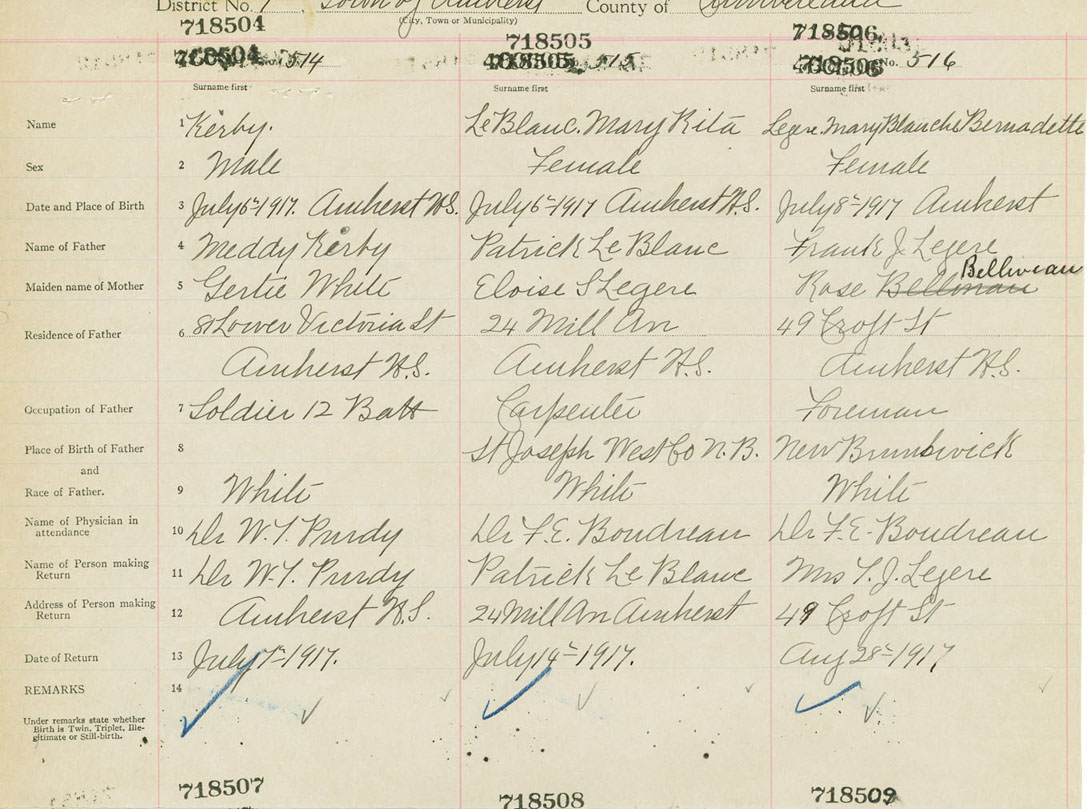 District No. 7 Town of Amherst County of Cumberland
(City, Town or Municipality)
718504 718505 718506
No. 514 515 No. 516
Surname first Surname first Surname first
Name 1 Kerby. LeBlanc. Mary Rita Legere. Mary Blanche Bernadette
Sex 2 Male Female Female
Date and Place of Birth 3 July 6th 1917. Amherst N.S. July 6th 1917 Amherst N.S. July 8th 1917 Amherst
Name of Father 4 Meddy Kerby Patrick Le Blanc Frank J. Legere
Belliveau
Maiden name of Mother 5 Gertie White Eloise S Legere Rose
Residence of Father 6 81 Lower Victoria St 24 Mill Av 49 Croft St
Amherst N.S. Amherst N.S. Amherst N.S.
Occupation of Father 7 Soldier 12 Batt Carpenter Foreman
Place of Birth of Father 8 St Joseph West Co N.B. New Brunswick
and
Race of Father. 9 White White White
Name of Physician in
attendance 10 Dr W.T. Purdy Dr F.E. Boudreau Dr F.E. Boudreau
Name of Person making
Return 11 Dr W.T. Purdy Patrick Le Blanc Mrs F. J. Legere
Address of Person making
Return 12 Amherst N.S. 24 Mill Av Amherst 49 Croft St
Date of Return 13 July 1917. July 14th 1917. Aug 28th 1917
REMARKS 14
Under remarks state whether
Birth is Twin, Triplet, Ille-
gitimate or Still-birth.
718507 718508 718509